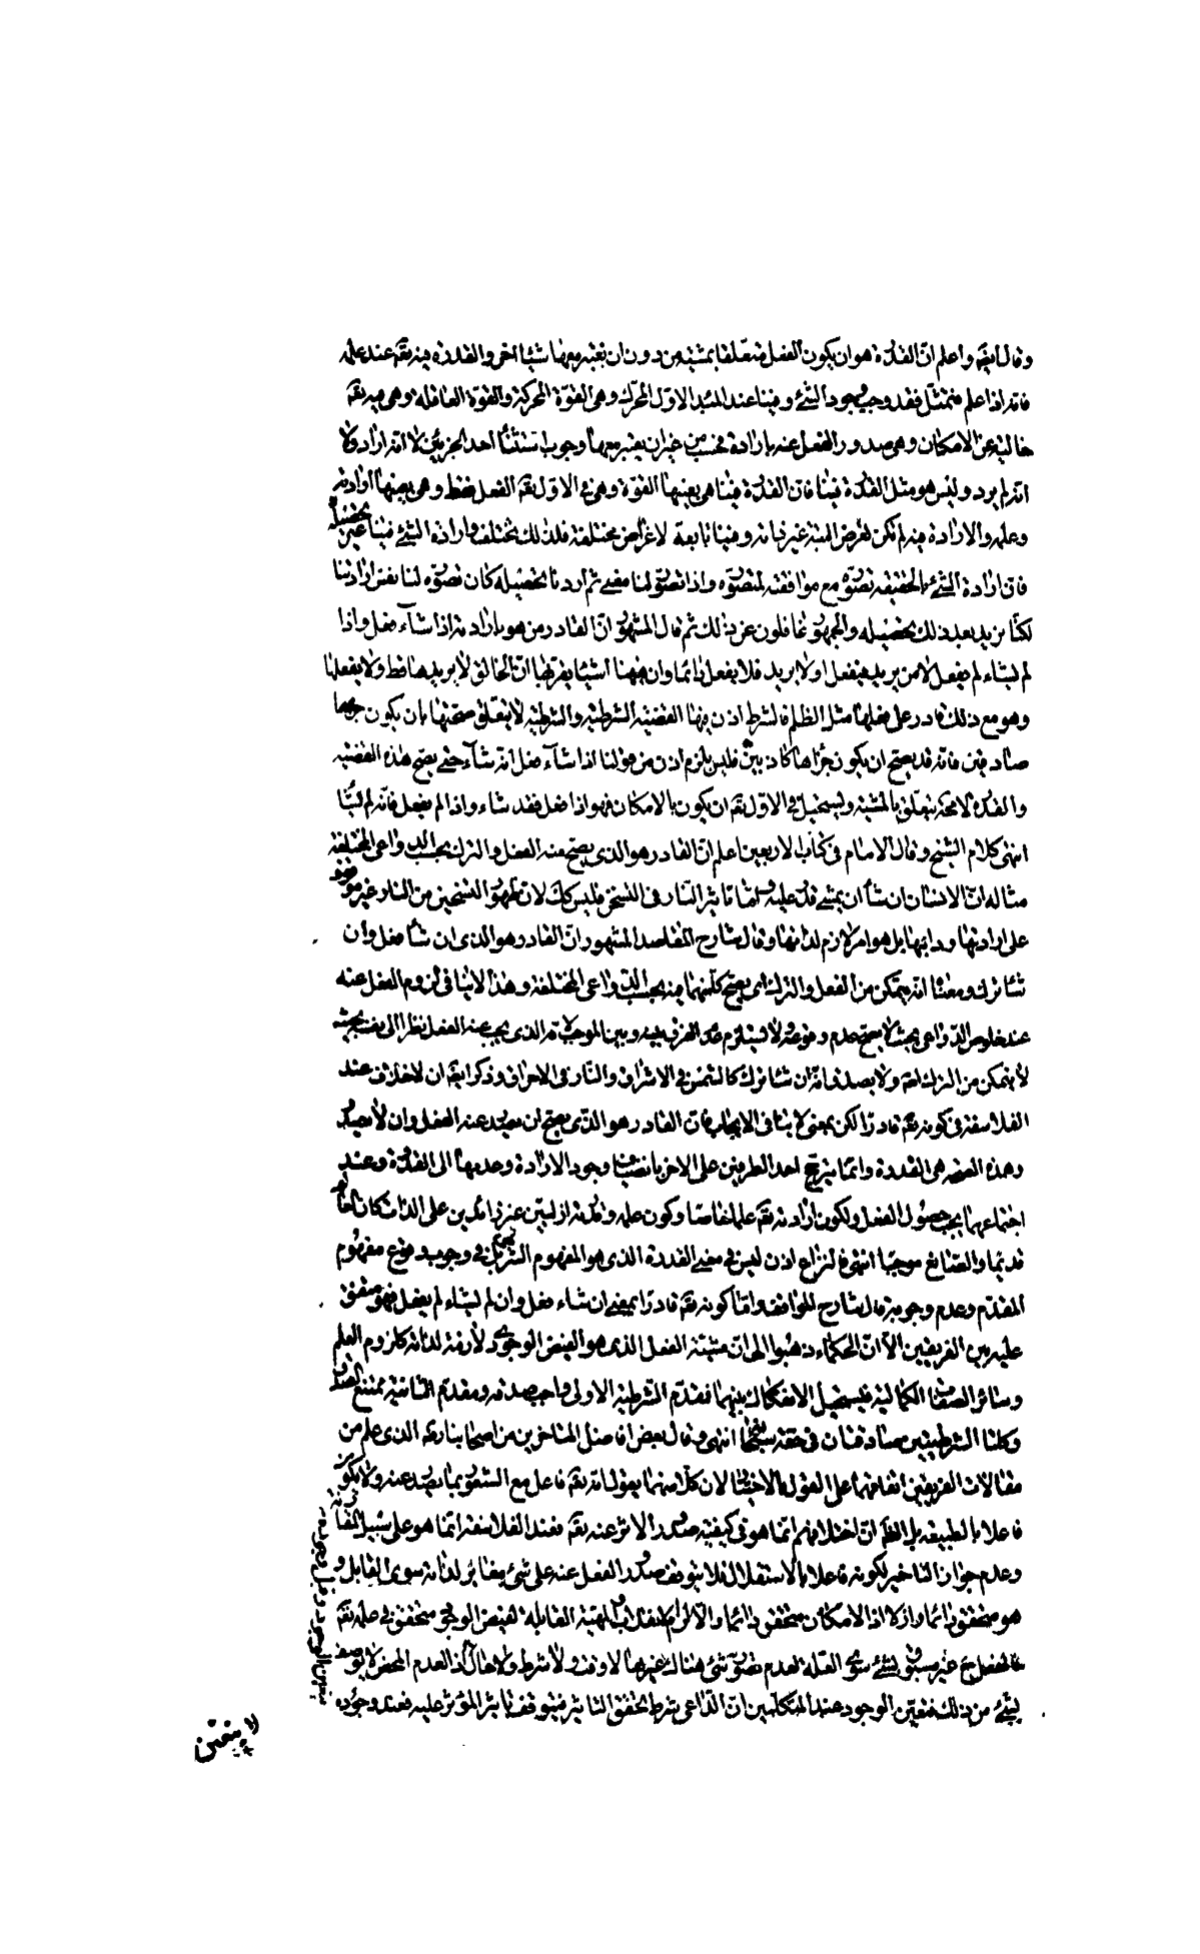 وقال ايضا واعلم ان القدرة هو ان يكون الفعل متعلقا بمشية من دون ان يعتبر معها شيئا اخر والقدرة فيه تعه عند علمه
فانه اذا علم فتمثل فقد وجب وجود الشئ وفينا عند المبدا الاول المحرك وهي القوة المحركة والقوة العاقلة وهي فيه تعه
خالية عن الامكان وهي صدور الفعل عنه بارادة فحسب من غير ان يعتبر معها وجوب استثناء احد الجزئين لا انه اراد ولا
انه لم يرد وليس هو مثل القدرة فينا فان القدرة فينا هي بعينها القوة وهي في الاول تعه الفعل فقط وهي بعينها ارادته
وعلمه والارادة فيه لم تكن لغرض البتة غير ذاته وفينا تابعة لاغراض مختلفة فلذلك تختلف وارادة الشئ فينا غير تحصيله
فان ارادة الشئ بالحقيقة تصوره مع موافقته لمتصوره واذا تصور لنا معنى ثم اردنا تحصيله كان تصوره لنا نفس ارادتنا
لكنا نريد بعد ذلك تحصيله والجمهور غافلون عن ذلك ثم قال المشهور ان القادر من هو بارادته اذا شاء فعل واذا
لم يشاء لم يفعل لا من يريد فيفعل او لا يريد فلا يفعل دائما وان ههنا اشياء يقر بها ان الخالق لا يريدها قط ولا يفعلها
وهو مع ذلك قادر على فعلها مثل الظلم فالشرط اذن فيها القضية الشرطية والشرطية لا يتعلق صحتها بان يكون جزءاها
صادقين فانه قد يصح ان يكون جزءاها كاذبين فليس يلزم اذن من قولنا اذا شاء فعل انه شاء حتى يصح هذه القضية
والقدرة لا محة يتعلق بالمشية ويستحيل في الاول تعه ان يكون بالامكان فهو اذا فعل فقد شاء واذا لم يفعل فانه لم يشا
انتهى كلام الشيخ وقال الامام في كتاب الاربعين اعلم ان القادر هو الذي يصح عنه الفعل والترك بحسب الدواعي المختلفة
مثاله ان الانسان ان شاء ان يمشي قدر عليه واما تاثير النار في التسخن فليس كك لان ظهور التسخين من النار غير موقوف
على ارادتها ودايها بل هو امر لازم لذاتها وقال شارح المقاصد المشهور ان القادر هو الذي ان شاء فعل وان
شاء ترك ومعناه انه يتمكن من الفعل والترك اي يصح كل منهما منه بحسب الدواعي المختلفة وهذا لا ينافي لزوم الفعل عنه
عند خلوص الداعي بحيث لا يصح عدم وقوعه ولا يستلزم عدم الفرق بينه وبين الموجب لانه الذي يجب عنه الفعل نظرا الى نفسه بحيث
لا يتمكن من الترك اصه ولا يصدق انه ان شاء ترك كالشمس في الاشراق والنار في الاحراق وذكر ايضه ان لا خلاف عند
الفلاسفة في كونه تعه قادرا لكن بمعنى لا ينافي الايجاب فان القادر هو الذي يصح ان يصدر عنه الفعل وان لا يصدر
وهذه الصحة هي القدرة وانما يترجح احد الطرفين على الاخر بانضياف وجود الارادة وعدمها الى القدرة وعند
اجتماعهما يجب حصول الفعل ولكون ارادته تعه علما خاصا وكون علمه وقدرته ازليتين غير زائدين على الذات كان العالم
قديما والصانع موجبا انتهى فالنزاع اذن ليس في معنى القدرة الذي هو المفهوم الشرطي بل في وجوب وقوع مفهوم
المقدم وعدم وجوبه قال شارح المواقف واما كونه تعه قادرا بمعنى ان شاء فعل وان لم يشاء لم يفعل فهو متفق
عليه بين الفريقين الا ان الحكماء ذهبوا الى ان مشية الفعل الذي هو الفيض والوجود لازمة لذاته كلزوم العلم
وسائر الصفات الكمالية فيستحيل الانفكاك بينهما فمقدم الشرطية الاولى واجب صدقه ومقدم الثانية ممتنع الصدق
وكلتا الشرطيتين صادقتان في حقه سبحانه انتهى وقال بعض افاضل المتاخرين من اصحابنا ره الذي علم من
مقالات الفريقين اتفاقهما على القول بالاختيار لان كلا منهما يقول انه تعه فاعل مع الشعور بما يصدر عنه ولا يكون
فاعلا بالطبيعة بل الظم ان اختلافهم انما هو في كيفية صدور الاثر عنه تعه فعند الفلاسفة انما هو على سبيل المقارنة
وعدم جواز التاخير لكونه فاعلا بالاستقلال فلا يتوقف صدور الفعل عنه على شئ مغاير لذاته سوى القابل و
هو متحقق دائما وازلا اذ الامكان متحقق دائما والا لزم الانقلاب والمهية القابلة لفيض الوجود متحقق في علمه تعه
فالفعل ح غير مسبوق بشئ سوى العلة لعدم تصور شئ هناك غيرها لا وقت ولا شرط ولا حال اذ العدم المحض لا يوصف
بشئ من ذلك فتعين الوجود عند المتكلمين ان الداعي شرط لتحقق التاثير فيتوقف تاثير المؤثر عليه فعند وجوده
لا يتعين